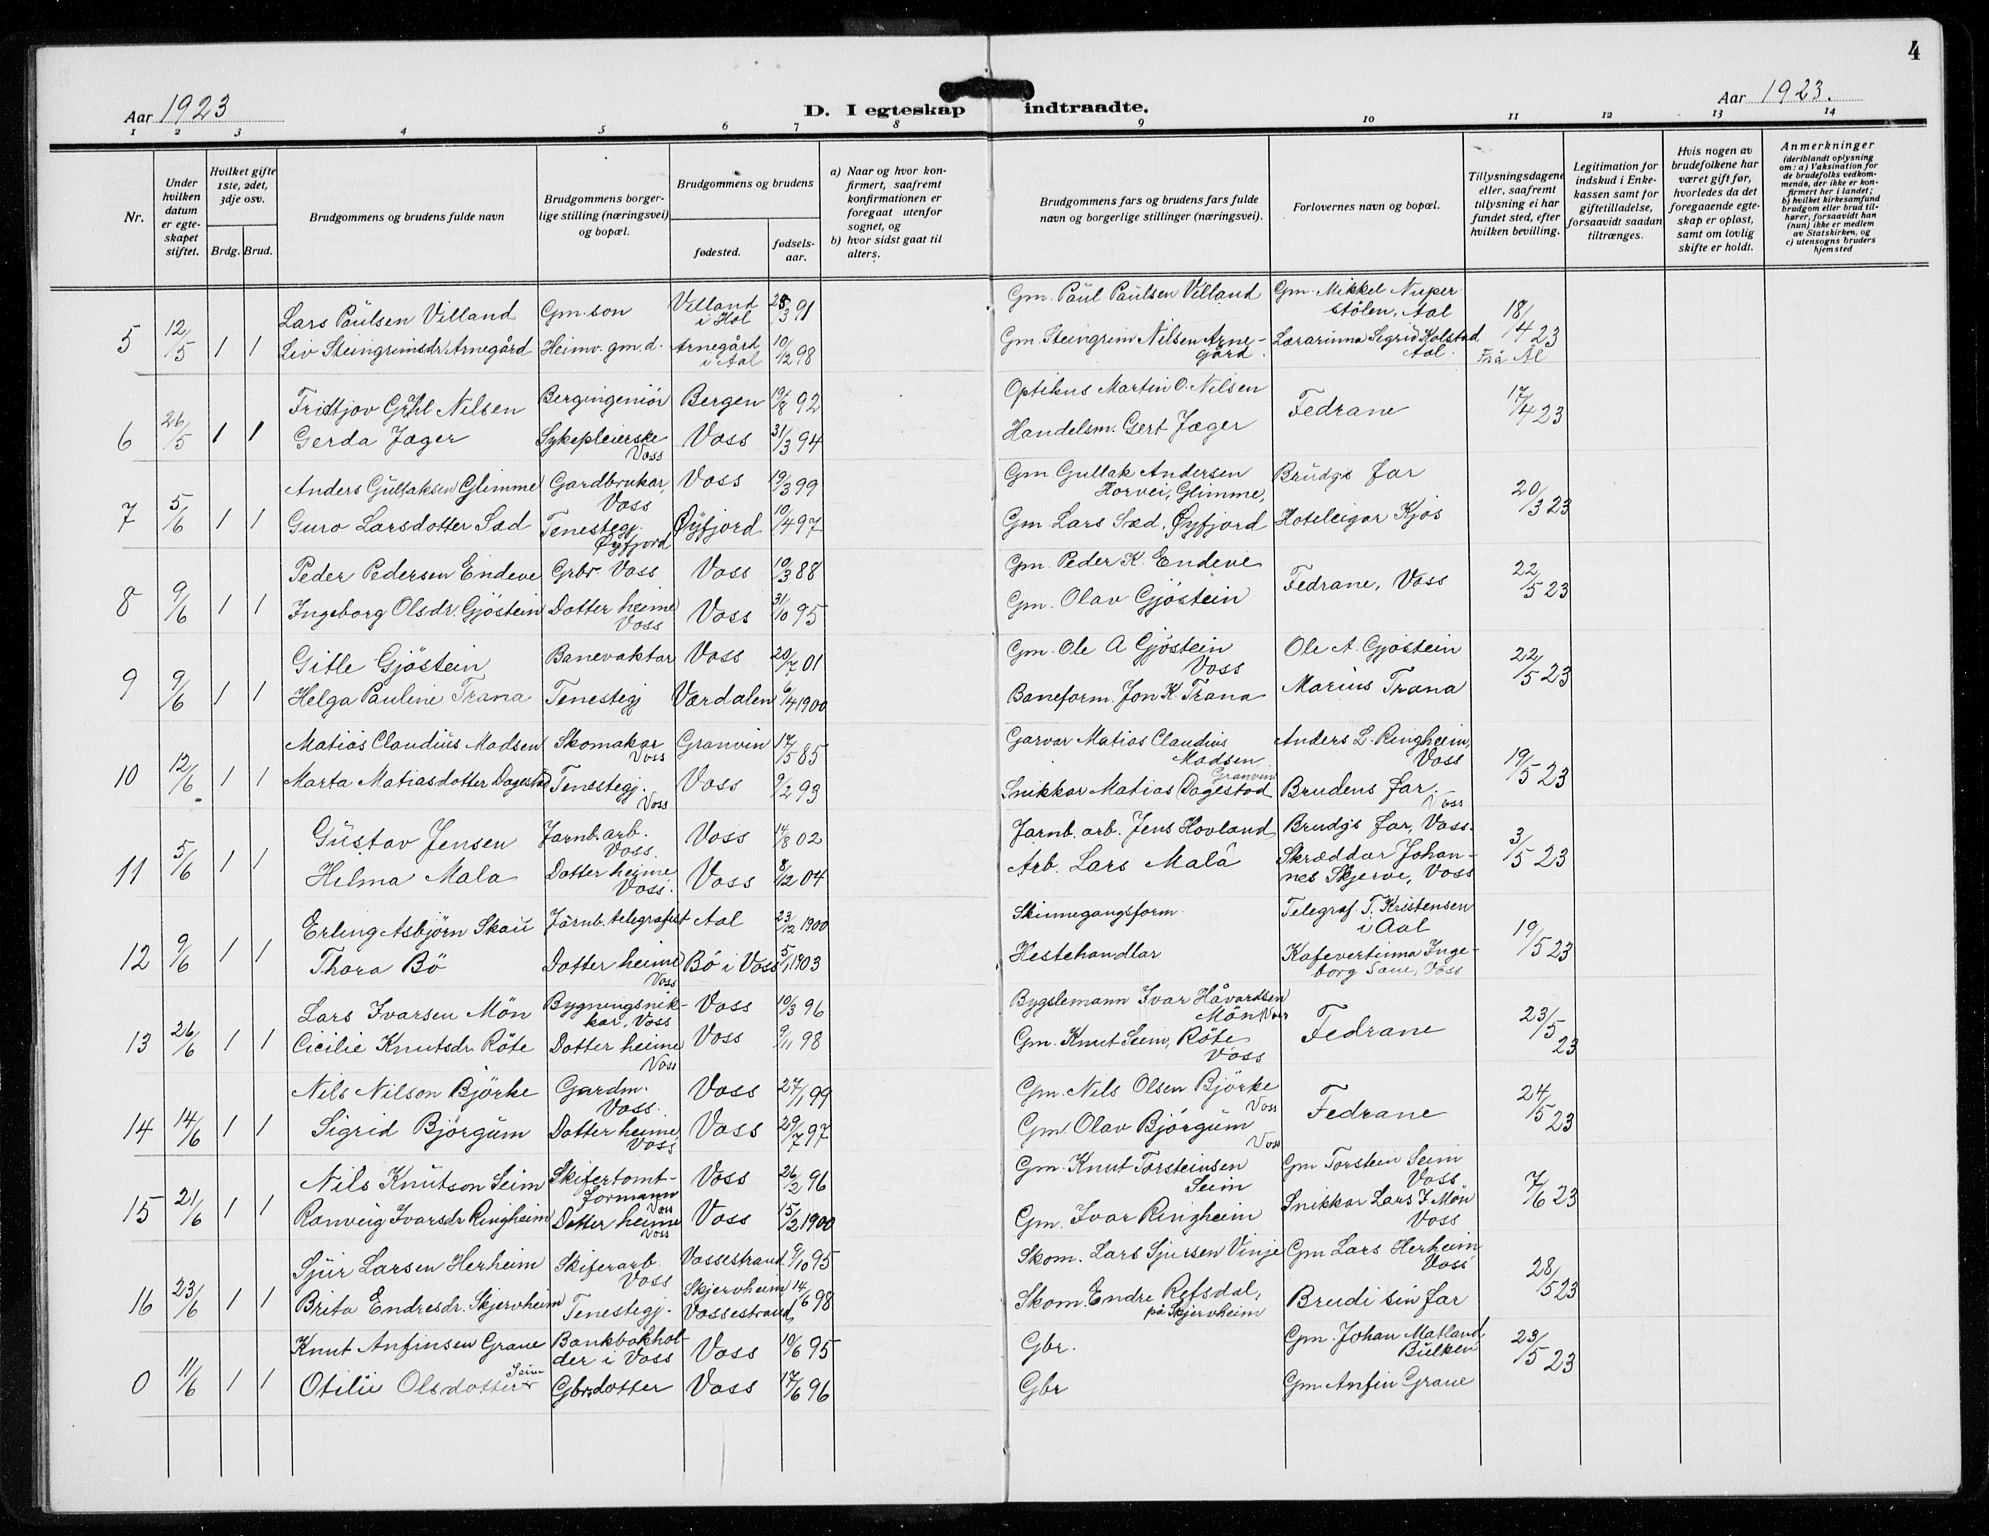 4
Aar 1923
D. I egteskap indtraadte.
Aar 1923.
1 2 3 4 5 6 7 8 9 10 11 12 13 14
Nr.
Under hvilken datum er egteskapet stiftet.
Hvilket gifte 1ste, 2det, 3dje osv.
Brdg. Brud.
Brudgommens og brudens fulde navn
Brudgommens borgerlige stilling (næringsvei) og bopæl.
Brudgommens og brudens
fødested.
fødselsaar.
a) Naar og hvor konfirmert, saafremt konfirmationen er foregaat utenfor sognet, og
b) hvor sidst gaat til alters.
Brudgommens fars og brudens fars fulde navn og borgerlige stillinger (næringsvei).
Forlovernes navn og bopæl.
Tillysningsdagene eller, saafremt tillysning ei har fundet sted, efter hvilken bevilling.
Legitimation for indskud i Enkekassen samt for giftetilladelse, forsaavidt saadan tiltrænges.
Hvis nogen av brudefolkene har været gift før, hvorledes da det foregaaende egteskap er opløst, samt om lovlig skifte er holdt.
Anmerkninger
(deriblandt oplysning om: a) Vaksination for de brudefolks vedkommende, der ikke er konfirmert her i landet; b) hvilket kirkesamfund brudgom eller brud tilhører, forsaavidt han (hun) ikke er medlem av Statskirken, og c) utensogns bruders hjemsted
5 12/5 1 1 Lars Paulsen Villand Gm. son Villand i Hol 28/3 91 Gm. Paul Paulsen Villand Gm. Mikkel Nuperstölen, Aal 18/4 23
Liv Steingrimsdr. Arnegård Heimv. gm. d. Arnegård i Aal 10/12 98 Gm. Steingrim Nilsen Arnegård. Lærarinna Sigrid Kolstad Aal. Frå Ål
6 26/5 1 1 Fridtjov Gühl Nilsen Bergingeniör Bergen 19/8 92 Optikus Martin O. Nilsen Fedrane 17/4 23
Gerda Jæger Sykepleierske Voss Voss 31/3 94 Handelsm. Gert Jæger
7 5/6 1 1 Anders Gullaksen Glimme Gardbrukar, Voss Voss 19/3 99 Gm. Gullak Andersen Horvei, Glimme, Brudgs far 20/3 23
Guro Larsdotter Sæd Tenestegj. Øyfjord Øyfjord 10/4 97 Gm Lars Sæd, Øyfjord Hoteleigar Kjos
8 9/6 1 1 Peder Pedersen Endeve Grbr. Voss Voss 10/3 88 Gm. Peder K. Endeve Fedrane, Voss 22/5 23
Ingeborg Olsdr. Gjöstein Dotter heime Voss Voss 31/10 95 Gm. Olav Gjöstein
9 9/6 1 1 Gitle Gjöstein Banevaktar Voss 20/7 01 Gm. Ole A Gjöstein Voss Ole A. Gjöstein 22/5 23
Helga Pauline Trana Tenestegj Værdalen 6/4 1900 Baneform. Jon K Trana Marius Trana
10 12/6 1 1 Matias Claudius Madsen Skomakar Voss Granvin 17/5 85 Garvar Matias Claudius Madsen Granvin Anders L. Ringheim, Voss 19/5 23
Marta Matiasdotter Dagestad Tenestegj. Voss Voss 9/2 93 Snikkar Matias Dagestad Brudens far. Voss
11 5/6 1 1 Gustav Jensen Jarnb. arb. Voss. Voss 14/8 02 Jarnb. arb. Jens Hovland Brudgs far, Voss. 3/5 23
Helma Mala Dotter heime Voss. Voss 8/12 04 Arb. Lars Mala Skræddar Johannes Skjerve, Voss
12 9/6 1 1 Erling Asbjörn Skau Järnb. telegrafist Aal 23/12 1900 Skinnegangsform. Telegraf. T. Kristensen i Aal 19/5 23
Thora Bö Dotter heime Voss Bö i Voss 5/1 1903 Hestehandlar Kafevertinna Ingeborg Saue, Voss
13 26/6 1 1 Lars Ivarsen Mön Bygningsnikkar, Voss Voss 10/3 96 Bygslemann Ivar Håvardsen Mön Voss Fedrane 23/5 23
Cicilie Knutsdr. Röte Dotter heime Voss Voss 9/11 98 Gm. Knut Seim, Röte Voss
14 14/6 1 1 Nils Nilson Björke Gardm. Voss. Voss 27/1 99 Gm. Nils Olsen Björke Voss Fedrane 24/5 23
Sigrid Björgum Dotter heime, Voss Voss 29/7 97 Gm Olav Björgum Voss
15 21/6 1 1 Nils Knutson Seim Skifertomtformann Voss Voss 26/2 96 Gm. Knut Torsteinsen Seim Gm Torstein Seim Voss 7/6 23
Ranveig Ivarsdr. Ringheim Dotter heime Voss Voss 15/2 1900 Gm. Ivar Ringheim Snikkar Lars I Mön Voss
16 23/6 1 1 Sjur Larsen Herheim Skiferarb. Voss Vossestrand 9/10 95 Skom. Lars Sjursen Vinje Gm Lars Herheim Voss 28/5 23
Brita Endresdr. Skjervheim Tenestegj. Skjervheim Vossestrand 14/6 98 Skom. Endre Refsdal, på Skjervheim Brudi sin far
0 11/6 1 1 Knut Anfinsen Graue Bankbokholder i Voss Voss 10/6 95 Gbr. Gm. Johan Matland Bulken 23/5 23
Otilie Olsdotter Seim Gbrsdotter Voss 17/6 96 Gbr Gm Anfin Graue